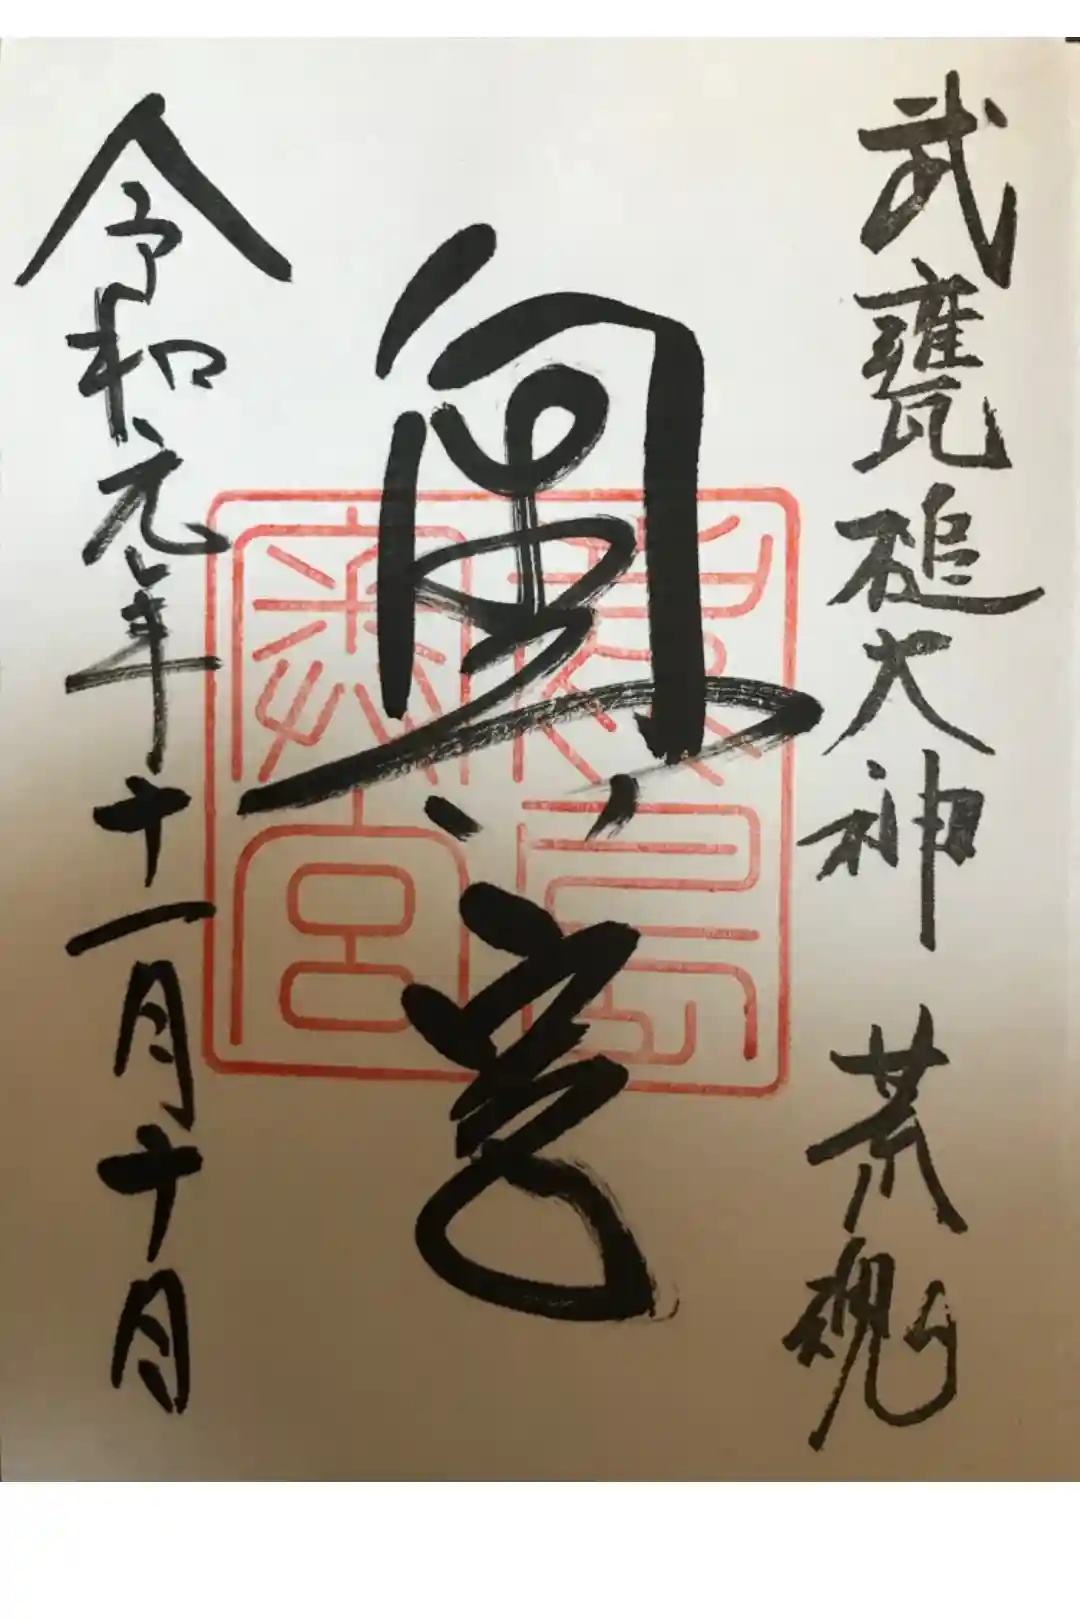 武甕槌大神 荒魂
奥宮
鹿島奥宮
令和元年十一月十日